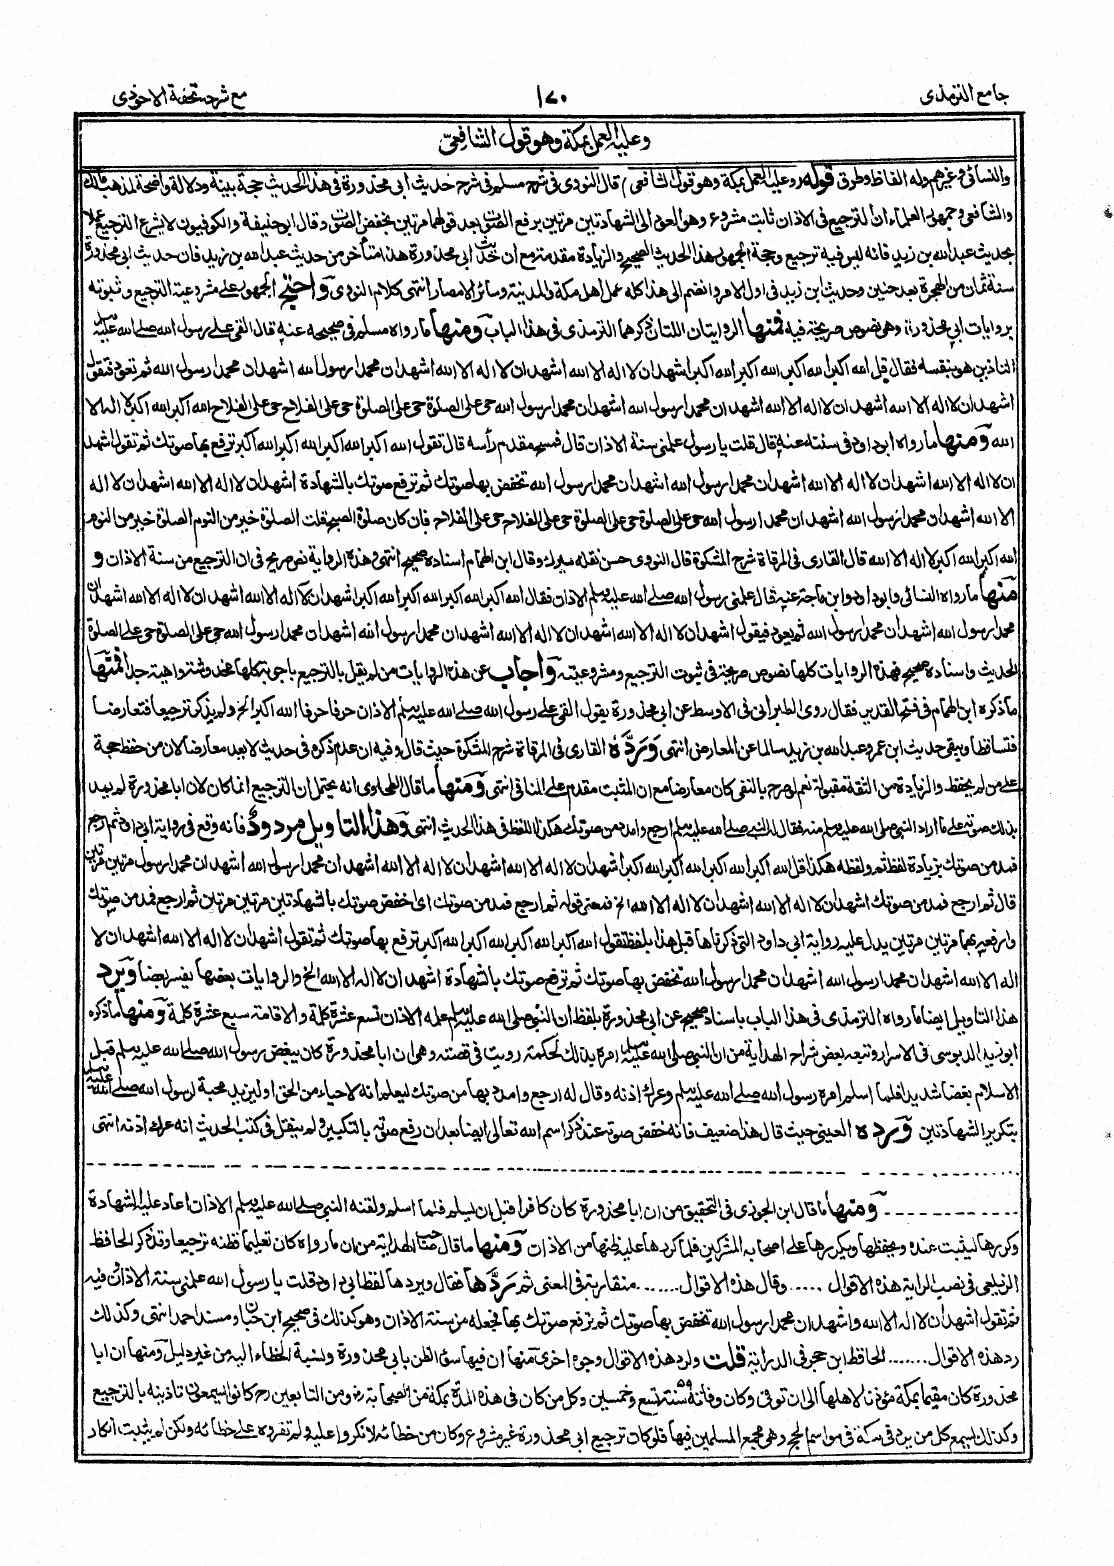 جامع الترمذى
١٧٠
مع شرحه تحفة الاحوذى
وعليه العمل بمكة وهو قول الشافعيّ
والنسائى وغيرهم وله الفاظ وطرق قوله (وعليه العمل بمكة وهو قول الشافعى) قال النووى فى شرح مسلم فى شرح حديث ابى محذورة فى هذا الحديث حجة بينة ودلالة واضحة لمذهب مالك
والشافعى وجمهور العلماء ان الترجيع فى الاذان ثابت مشروع وهو العود الى الشهادتين مرتين برفع الصوت بعد قولهما مرتين بخفض الصوت وقال ابو حنيفة والكوفيون لا يشرع الترجيع عملا
بحديث عبد الله بن زيد فانه ليس فيه ترجيع وحجة الجمهور هذا الحديث الصحيح والزيادة مقدمة مع ان حديث ابى محذورة هذا متأخر من حديث عبد الله بن زيد فان حديث ابى محذورة
سنة ثمان من الهجرة بعد حنين وحديث ابن زيد فى اول الامر وانضم الى هذا كله عمل اهل مكة والمدينة وسائر الامصار انتهى كلام النووى واحتج الجمهور على مشروعية الترجيع وثبوته
بروايات ابى محذورة وهو نصوص صريحة فيه فمنها الروايتان اللتان ذكرهما الترمذى فى هذا الباب ومنها ما رواه مسلم فى صحيحه عنه قال القى على رسول الله صلى الله عليه
التاذين هو بنفسه فقال قل الله اكبر الله اكبر الله اكبر الله اكبر اشهد ان لا اله الا الله اشهد ان لا اله الا الله اشهد ان محمدا رسول الله اشهد ان محمدا رسول الله ثم تعود فتقول
اشهد ان لا اله الا الله اشهد ان لا اله الا الله اشهد ان محمدا رسول الله اشهد ان محمدا رسول الله حى على الصلوة حى على الصلوة حى على الفلاح حى على الفلاح الله اكبر الله اكبر لا اله الا
الله ومنها ما رواه ابو داود فى سننه عنه قال قلت يا رسول علمنى سنة الاذان قال فمسح مقدم رأسه قال تقول الله اكبر الله اكبر الله اكبر الله اكبر ترفع بها صوتك ثم تقول اشهد
ان لا اله الا الله اشهد ان لا اله الا الله اشهد ان محمدا رسول الله اشهد ان محمدا رسول الله تخفض بها صوتك ثم ترفع صوتك بالشهادة اشهد ان لا اله الا الله اشهد ان لا اله
الا الله اشهد ان محمدا رسول الله اشهد ان محمدا رسول الله حى على الصلوة حى على الصلوة حى على الفلاح حى على الفلاح فان كان صلوة الصبح قلت الصلوة خير من النوم الصلوة خير من النوم
الله اكبر الله اكبر لا اله الا الله قال القارى فى المرقاة شرح المشكوة قال النووى حسن نقله ميرك وقال ابن الهمام اسناده صحيح انتهى وهذه الرواية نص صريح فى ان الترجيع من سنة الاذان و
منها ما رواه النسائى وابو داود وابن ماجة عنه قال علمنى رسول الله صلى الله عليه وسلم الاذان فقال الله اكبر الله اكبر الله اكبر الله اكبر اشهد ان لا اله الا الله اشهد ان لا اله الا الله اشهد ان
محمدا رسول الله اشهد ان محمدا رسول الله ثم يعود فيقول اشهد ان لا اله الا الله اشهد ان لا اله الا الله اشهد ان محمدا رسول الله اشهد ان محمدا رسول الله حى على الصلوة حى على الصلوة
الحديث واسناده صحيح فهذه الروايات كلها نصوص صريحة فى ثبوت الترجيع ومشروعيته واجاب عن هذه الروايات من لم يقل بالترجيع باجوبة كلها مخدوشة واهية جدا فمنها
ما ذكره ابن الهمام فى فتح القدير فقال روى الطبرانى فى الاوسط عن ابى محذورة يقول القى على رسول الله صلى الله عليه وسلم الاذان حرفا حرفا الله اكبر الخ ولم يذكر ترجيعا فتعارضا
فتساقطا ويبقى حديث ابن عمر وعبد الله بن زيد سالما عن المعارض انتهى ورَدَّه القارى فى المرقاة شرح المشكوة حيث قال وفيه ان عدم ذكره فى حديث لا يعد معارضا لان من حفظ حجة
على من لم يحفظ والزيادة من الثقة مقبولة نعم لو صرح بالنفى كان معارضا مع ان المثبت مقدم على النافى انتهى ومنها ما قال الطحاوى انه يحتمل ان الترجيع انما كان لان ابا محذورة لم يمد
بذلك صوته على ما اراد النبى صلى الله عليه وسلم منه فقال له النبى صلى الله عليه وسلم ارجع وامدد من صوتك هكذا اللفظ فى هذا الحديث انتهى وهذا التاويل مردود فانه وقع فى رواية ابى داود ثم ارجع
فمد من صوتك بزيادة لفظ ثم ولفظه هكذا قل الله اكبر الله اكبر الله اكبر الله اكبر اشهد ان لا اله الا الله اشهد ان لا اله الا الله اشهد ان محمدا رسول الله اشهد ان محمدا رسول مرتين مرتين
قال ثم ارجع فمد من صوتك اشهد ان لا اله الا الله اشهد ان لا اله الا الله الخ فمعنى قوله ثم ارجع فمد من صوتك اى اخفض صوتك بالشهادتين مرتين مرتين ثم ارجع فمد من صوتك
وارفعه بهما مرتين مرتين يدل عليه رواية ابى داود التى ذكرناها قبل هذا بلفظ تقول الله اكبر الله اكبر الله اكبر الله اكبر ترفع بها صوتك ثم تقول اشهد ان لا اله الا الله اشهد ان لا
اله الا الله اشهد ان محمدا رسول الله اشهد ان محمدا رسول الله تخفض بها صوتك ثم ترفع صوتك بالشهادة اشهد ان لا اله الا الله الخ والروايات بعضها يفسر بعضا ويرد
هذا التاويل ايضا ما رواه الترمذى فى هذا الباب باسناد صحيح عن ابى محذورة بلفظ ان النبى صلى الله عليه وسلم علمه الاذان تسع عشرة كلمة والاقامة سبع عشرة كلمة ومنها ما ذكره
ابو زيد الدبوسى فى الاسرار وتبعه بعض شراح الهداية من ان النبى صلى الله عليه وسلم امره بذلك لحكمة رويت فى قصته وهى ان ابا محذورة كان يبغض رسول الله صلى الله عليه وسلم قبل
الاسلام بغضا شديدا فلما اسلم امره رسول الله صلى الله عليه وسلم وعرك اذنه وقال له ارجع وامدد بها من صوتك ليعلم انه لا حياء من الحق او ليزيد محبة رسول الله صلى الله عليه وسلم
بتكرير الشهادتين ورده العينى حيث قال هذا ضعيف فانه خفض صوته عند ذكر اسم الله تعالى ايضا بعد ان رفع صوته بالتكبير ولم ينقل فى كتب الحديث انه عرك اذنه انتهى
ومنها ما قال ابن الجوزى فى التحقيق من ان ابا محذورة كان كافرا قبل ان يسلم فلما اسلم ولقنه النبى صلى الله عليه وسلم الاذان اعاد عليه الشهادة
وكررها ليثبت عنده ويحفظها ويكررها على اصحابه المشركين فلما كررها عليه ظنها من الاذان ومنها ما قال صاحب الهداية من ان ما رواه كان تعليما فظنه ترجيعا وقد ذكر الحافظ
الزيلعى فى نصب الراية هذه الاقوال ..... وقال هذه الاقوال ....... متقاربة فى المعنى ثم ردَّها فقال ويردها لفظ ابى داود قلت يا رسول الله علمنى سنة الاذان وفيه
ثم تقول اشهد ان لا اله الا الله واشهد ان محمدا رسول الله تخفض بها صوتك ثم ترفع صوتك بها فجعله من سنة الاذان وهو كذلك فى صحيح ابن حبان ومسند احمد انتهى وكذلك
رد هذه الاقوال ....... الحافظ ابن حجر فى الدراية قلت ولرد هذه الاقوال وجوه اخرى منها ان فيها سوء الظن بابى محذورة ونسبة الخطاء اليه من غير دليل ومنها ان ابا
محذورة كان مقيما بمكة مؤذنا لاهلها الى ان توفى وكان وفاته سنة ٥٩ تسع وخمسين وكل من كان فى هذه المدة بمكة من الصحابة رض ومن التابعين رح كانوا يسمعون تاذينه بالترجيع
وكذلك يسمع كل من يرد فى مكة فى مواسم الحج وهى مجمع المسلمين فيها فلو كان ترجيع ابى محذورة غير مشروع وكان من خطائه لانكروا عليه ولم تقروه على خطائه ولكن لم يثبت انكار